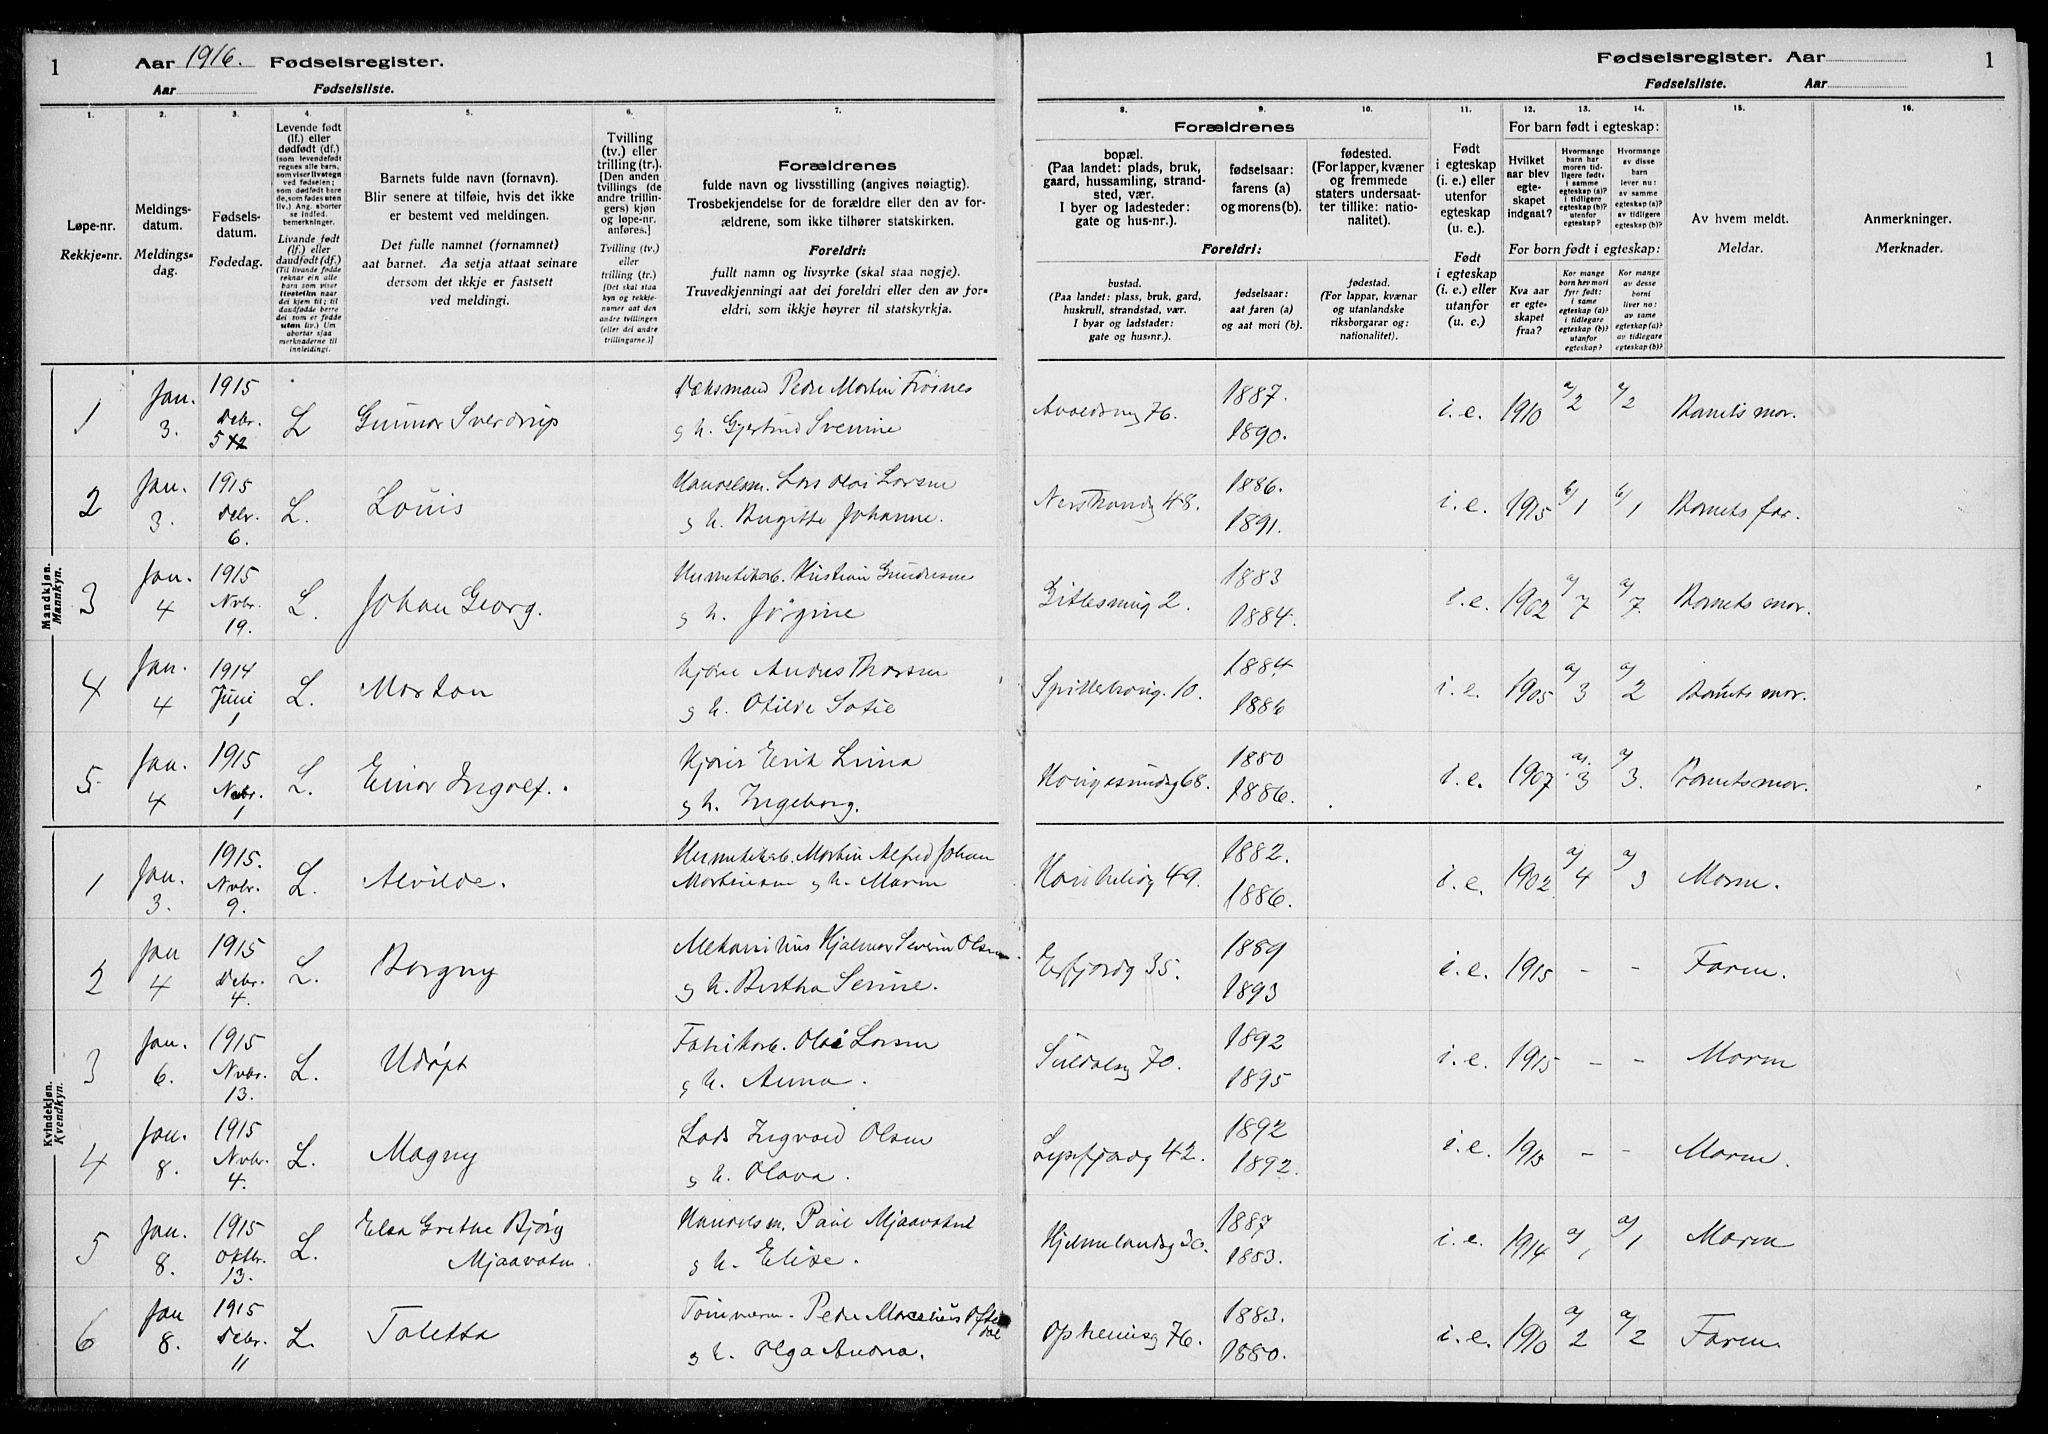 1 Aar 1916. Fødselsregister.
Aar Fødselsliste.
Fødselsregister. Aar 1
Fødselsliste. Aar
1. 2. 3. 4. 5. 6. 7. 8. 9. 10. 11. 12. 13. 14. 15. 16.
Løpe-nr.
Rekkje-nr.
Meldings-
datum.
Meldings-
dag.
Fødsels-
datum.
Fødedag.
Levende født
(lf.) eller
dødfødt (df.)
(som levendefødt
regnes alle barn,
som viser livstegn
ved fødselen;
som dødfødt bare
de, som fødes uten
liv.) Ang. aborter
se indled.
bemerkninger.
Livande født
(lf.) eller
daudfødt (df.)
(Til livande fødde
reknar ein alle
barn som viser
livsteikn naar
dei kjem til; til
daudfødde berre
dei som er fødde
utan liv.) Um
abortar sjaa
merknaderne til
innleidingi.
Barnets fulde navn (fornavn).
Blir senere at tilføie, hvis det ikke
er bestemt ved meldingen.
Det fulle namnet (fornamnet)
aat barnet. Aa setja attaat seinare
dersom det ikkje er fastsett
ved meldingi.
Tvilling
(tv.) eller
trilling (tr.).
[Den anden
tvillings (de
andre trillin-
gers) kjøn
og løpe-nr.
anføres.]
Tvilling (tv.)
eller
trilling (tr.)
[Det skal staa
kyn og rekkje-
numer aat den
andre tvillingen
(eller dei andre
trillingarne.)]
Forældrenes
fulde navn og livsstilling (angives nøiagtig).
Trosbekjendelse for de forældre eller den av for-
ældrene, som ikke tilhører statskirken.
Foreldri:
fullt namn og livsyrke (skal staa nøgje).
Truvedkjenningi aat dei foreldri eller den av for-
eldri, som ikkje høyrer til statskyrkja.
Forældrenes
bopæl.
(Paa landet: plads, bruk,
gaard, hussamling, strand-
sted, vær.
I byer og ladesteder:
gate og hus-nr.).
fødselsaar:
farens (a)
og morens (b).
fødested.
(For lapper, kvæner
og fremmede
staters undersaat-
ter tillike: natio-
nalitet).
Foreldri:
bustad.
(Paa landet: plass, bruk, gard,
huskrull, strandstad, vær.
I byar og ladstader:
gate og hus-nr.).
fødselsaar:
aat faren (a)
og aat mori (b).
fødestad.
(For lappar, kvænar
og utanlandske
riksborgarar og:
nationalitet).
Født
i egteskap
(i. e.) eller
utenfor
egteskap
(u. e.).
Født
i egteskap
(i. e.) eller
utanfor
(u. e.)
For barn født i egteskap:
Hvilket
aar blev
egte-
skapet
indgaat?
Hvormange
barn har
moren tid-
ligere født:
i samme
egteskap (a)?
i tidligere
egteskap (b)?
utenfor
egteskap?
Hvormange
av disse
barn
lever nu:
av samme
egteskap (a)?
av tidligere
egteskap (b)?
For born født i egteskap:
Kva aar
er egte-
skapet
fraa?
Kor mange
born hev mori
fyrr født:
i same
egteskap (a)?
i tidlegare
egteskap (b)?
utanfor
egteskap?
Kor mange
av desse
borni
liver no:
av same
egteskap (a)?
av tidlegare
egteskap (b)?
Av hvem meldt.
Meldar.
Anmerkninger.
Merknader.
Mandkjøn.
Mannkyn.
1 Jan. 3. 1915 Debr. 5 L Gunnar Sverdrup Dæksmand Peder Martin Frøsnes
g h. Gjertrud Svenine 76. 1887. 1890. i. e. 1910 a/2 a/2 Barnets mor.
2 Jan. 3. 1915 Debr. 6. L. Louis Handelsm. Lars Olai Larsen
g h. Birgitte Johanne. Nerstrandg 48. 1886. 1891. i. e. 1915 b/1 b/1 Barnets far.
3 Jan. 4 1915 Nvbr. 19. L. Johan Georg. Hermetikarb. Kristian Gundersen
g h. Jørgine 2. 1883 1884. i. e. 1902 a/7 a/7 Barnets mor.
4 Jan. 4 1914 Juni 1 L. Morton Kjører Anders Thorsen
g h. Otilde Sofie 10. 1884 1886 i. e. 1905 a/3 a/2 Barnets mor.
5 Jan. 4 1915 Nvbr. 1 L. Einar Ingolf. Kjører Erik Lima
g h. Ingeborg. Haugesundsg 68. 1880 1886. i. e. 1907 a/3 a/3. Barnets mor.
Kvindekjøn.
Kvendkyn.
1 Jan. 3. 1915. Nvbr. 9. L. Alvilde. Hermetikarb. Martin Alfred Johan
Martinsen g h. Maren Haukelidg 49. 1882. 1886. i. e. 1902 a/4 a/3 Moren.
2 Jan 4 1915 Debr. 4. L. Borgny Mekanikus Hjalmar Severin Olsen
g h. Bertha Serine. Erfjordg 35. 1889 1893 i. e. 1915 - - Faren.
3 Jan. 6. 1915 Nvbr. 13. L. Udøpt Fabrikarb. Olai Larsen
g h. Anna. Suldalsg 70. 1892 1895 i. e. 1915 - - Moren
4 Jan. 8. 1915 Nvbr. 4. L. Magny Lods Ingvald Olsen
g h. Olava. Lysefjordg 42. 1892 1892. i. e. 1915 - - Moren.
5 Jan. 8. 1915 Oktbr. 13. L. Elsa Grethe Bjørg
Mjaavatn. Handelsm. Paul Mjaavatn
g h. Elise. Hjelmelandsg 30. 1887 1883. i. e. 1914 a/1 a/1 Moren
6 Jan 8. 1915 Debr. 11 L. Toletta Tømmerm. Peder Marselius Oftedal
g h. Olga Andrea. Opheimsg 76. 1883. 1880. i. e. 1910 a/2 a/2 Faren